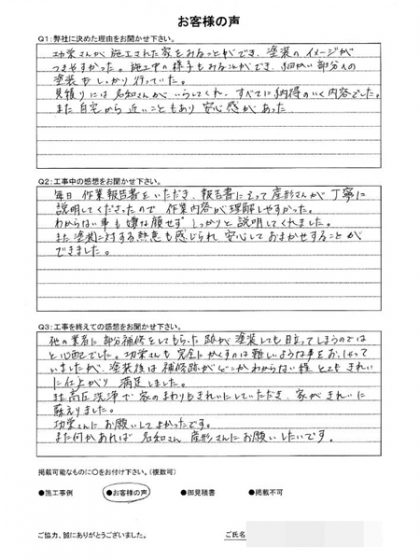 お客様の声
Q1:弊社に決めた理由をお聞かせ下さい。
功栄さんが施工された家をみることができ、塗装のイメージが
つきやすかった。施工中の様子もみることができ、細かい部分への
塗装もしっかり行っていた。
見積りには名知さんがいらしてくれ、すべてに納得のいく内容でした。
また自宅から近いこともあり安心感があった
Q2:工事中の感想をお聞かせ下さい。
毎日作業報告書をいただき、報告書にそって産形さんが丁寧に
説明してくださったので作業内容が理解しやすかった。
わからない事も嫌な顔せずしっかりと説明してくれました。
また塗装に対する熱意も感じられ安心しておまかせすることが
できました。
Q3:工事を終えての感想をお聞かせ下さい。
他の業者に部分補修をしてもらった跡が塗装しても目立ってしまうのでは
と心配でした。功栄さんも完全にかくすのは難しいような事をおっしゃって
いましたが、塗装後は補修跡がどこかわからない様とてもきれい
に仕上がり満足しました。
また高圧洗浄で家のまわりもきれいにしていただき、家がきれいに
蘇えりました。
功栄さんにお願いしてよかったです。
また何かあれば名知さん産形さんにお願いしたいです。
掲載可能なものに○をお付け下さい。(複数可)
●施工事例 ●お客様の声 ●御見積書 ●掲載不可
ご協力、誠にありがとうございました。 ご氏名